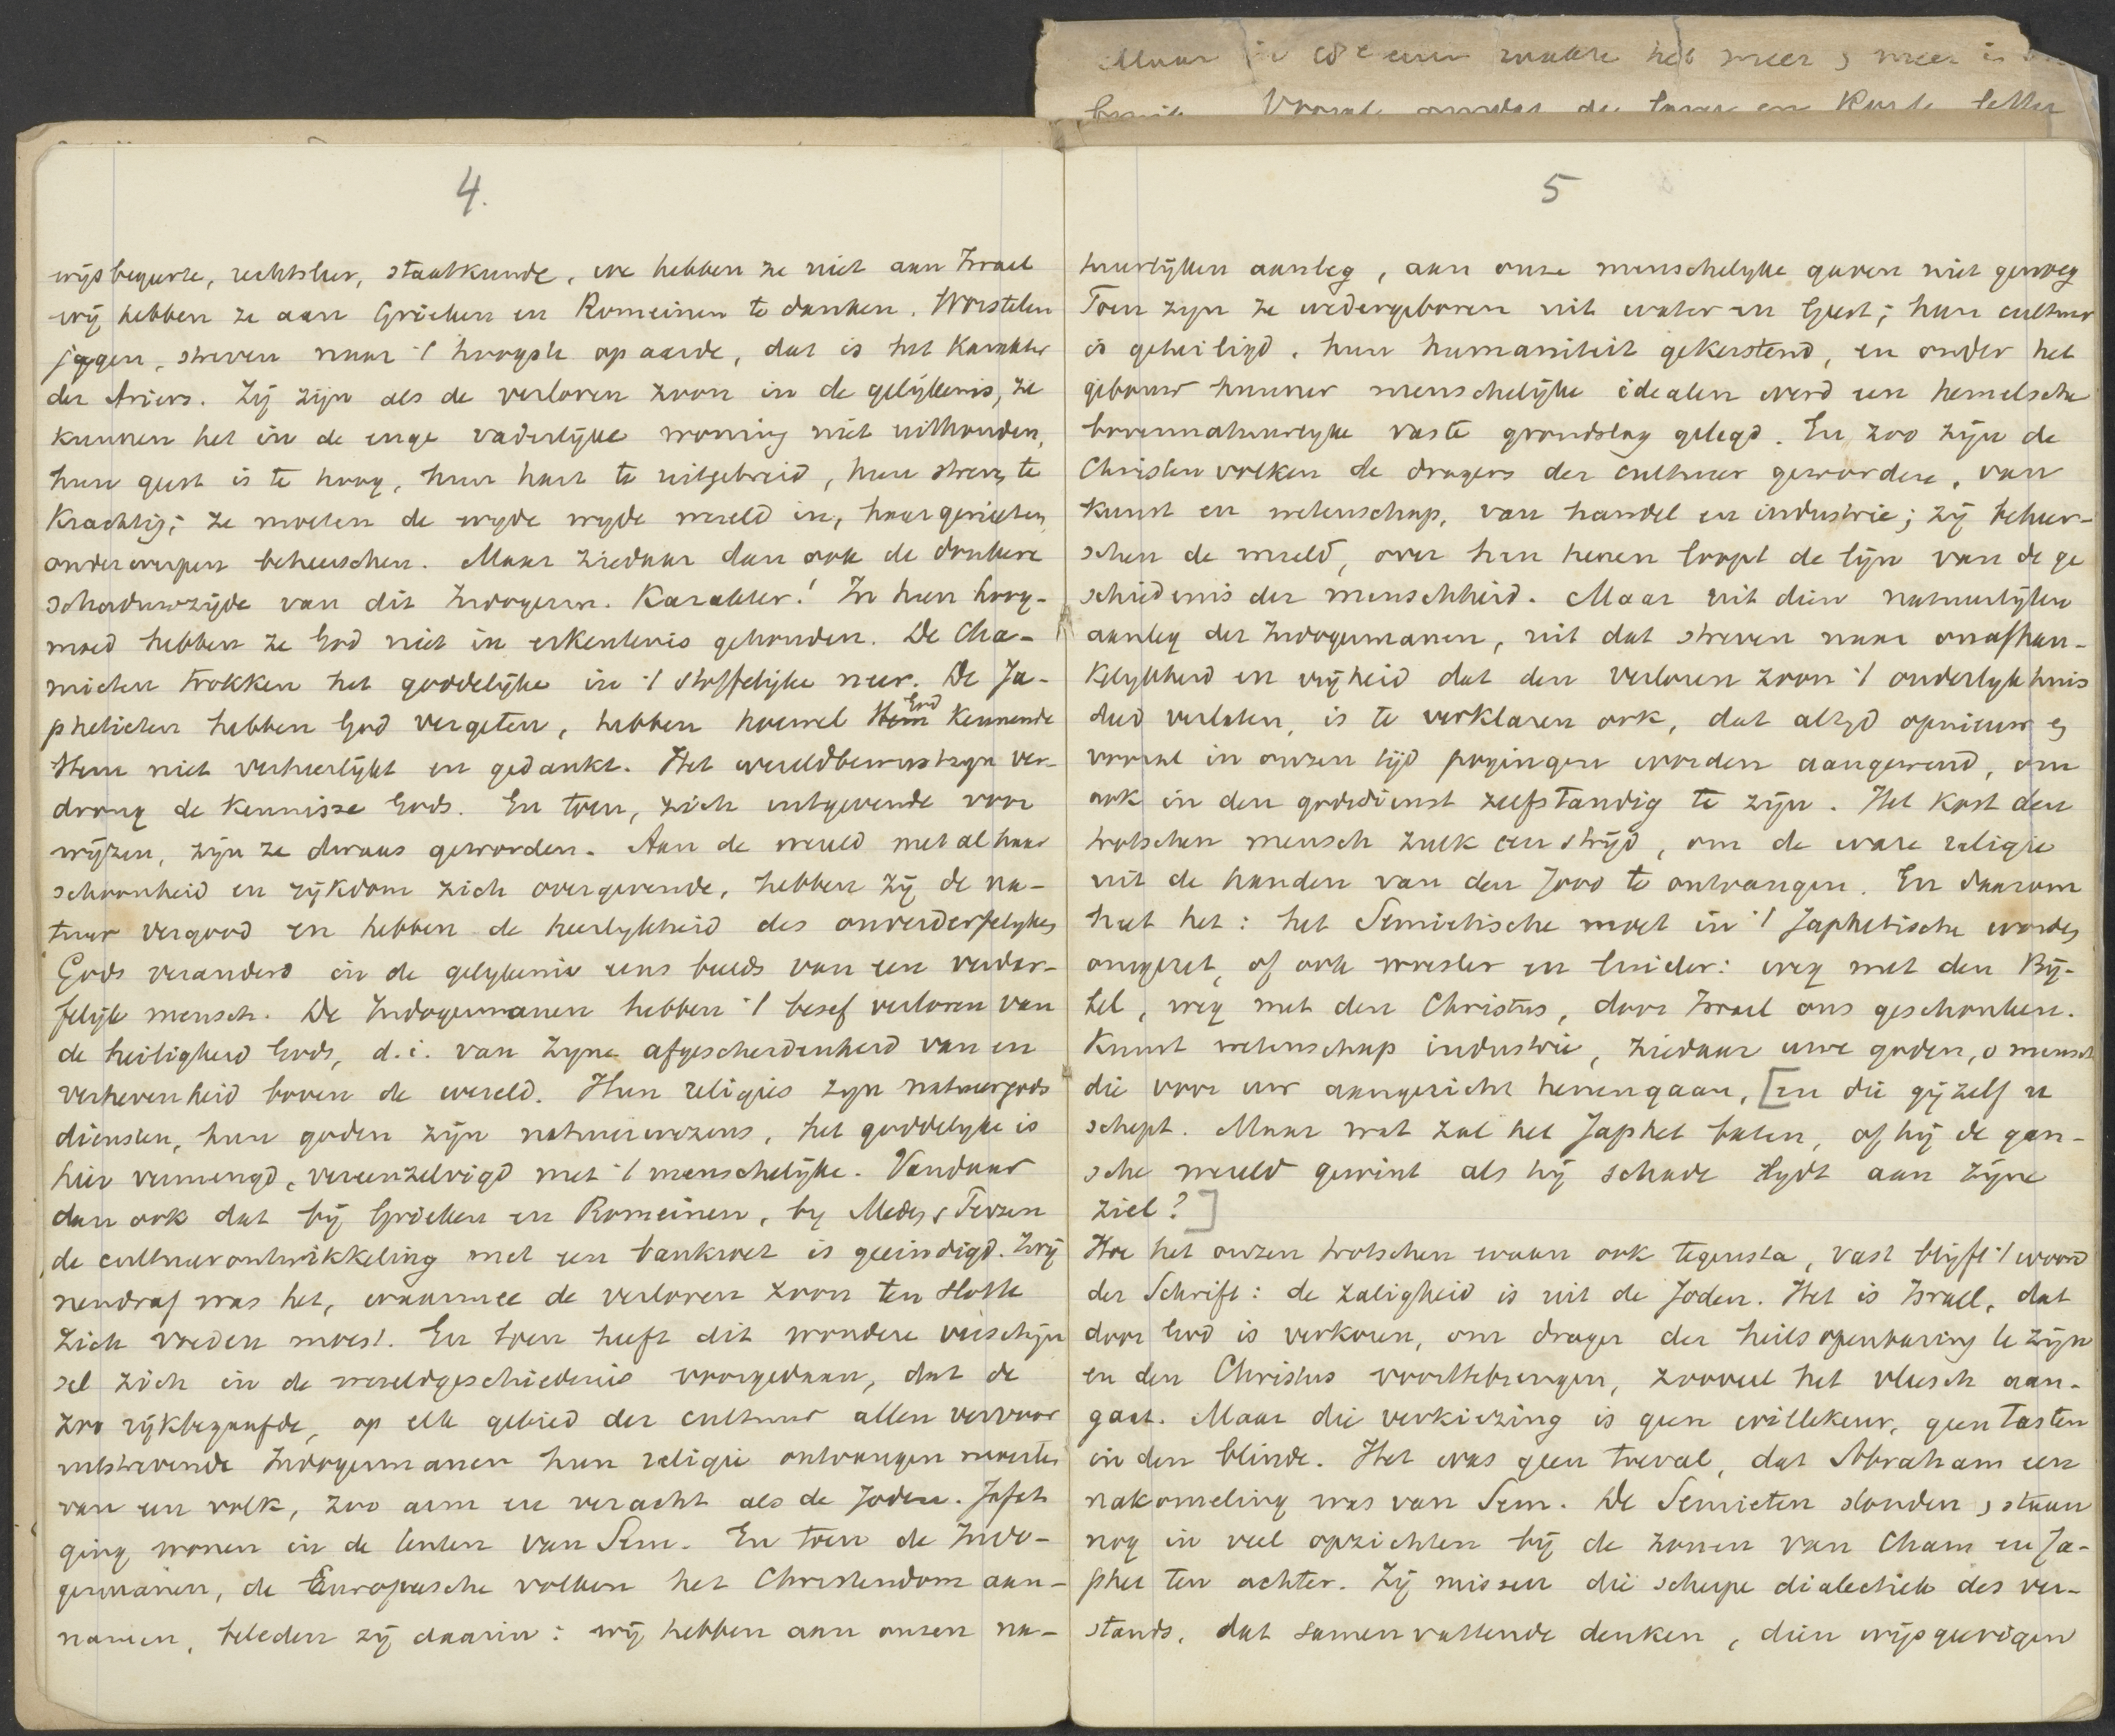 Maar in 18e eeuw raakte het meer & meer in
Vooral omdat de lange en korte letter
4.
wijsbegeerte, rechtsleer, staatkunde, we hebben ze niet aan Israel
wij hebben ze aan Grieken en Romeinen te danken. Worstelen
jagen, streven naar 't hoogste op aarde, dat is het karakter
der Ariers. Zij zijn als de verloren zoon in de gelijkenis, ze
kunnen het in de enge vaderlijke woning niet uithouden,
hun geest is te hoog, hun hart te uitgebreid, hun streven te
krachtig; ze moeten de wyde wyde wereld in, haar genieten,
onderwerpen beheerschen. Maar ziedaar dan ook de donkere
schaduwzijde van dit Indogerm. Karakter! In hun hoog-
moed hebben ze God niet in erkentenis gehouden. De Cha-
mieten trokken het goddelijke in 't stoffelijke neer. De Ja-
phetieten hebben God vergeten, hebben hoewel Hem God kennende
Hem niet verheerlijkt en gedankt. Het wereldbewustzijn ver-
drong de kennisse Gods. En toen, zich uitgevende voor
wijzen, zijn ze dwaas geworden. Aan de wereld met al haar
schoonheid en rijkdom zich overgevende, hebben zij de na-
tuur vergood en hebben de heerlykheid des onverderfelyken
Gods veranderd in de gelykenis eens beelds van een verder-
felijk mensch. De Indogermanen hebben 't besef verloren van
de heiligheid Gods, d.i. van Zyne afgescheidenheid van en
verhevenheid boven de wereld. Hun religies zyn natuurgods
diensten, hun goden zijn natuurwezens, het goddelyke is
hier vermengd, vereenzelvigd met 't menschelijke. Vandaar
dan ook dat bij Grieken en Romeinen, by Meden & Perzen
de cultuurontwikkeling met een bankroet is geeindigd. Zwij
nendraf was het, waarmee de verloren zoon ten slotte
zich voeden moest. En toen heeft dit wondere verschijn
sel zich in de wereldgeschiedenis voorgedaan, dat de
zoo rijkbegaafde, op elk gebied der cultuur allen vervoor
uitstrevende Indogermanen hun religie ontvangen moesten
van een volk, zoo arm en veracht als de Joden. Jafeth
ging wonen in de tenten van Sem. En toen de Indo-
germanen, de Europeesche volken het Christendom aan-
namen, beleden zij daarin: wij hebben aan onzen na-
5
tuurlijken aanleg, aan onze menschelyke gaven niet genoeg
Toen zyn ze wedergeboren uit water en Geest; hun cultuur
is geheiligd, hun humaniteit gekerstend, en onder het
gebouw hunner menschelijke idealen werd een hemelsche
bovennatuurlyke vaste grondslag gelegd. En zoo zijn de
Christenvolken de dragers der cultuur geworden, van
kunst en wetenschap, van handel en industrie; zij beheer-
schen de wereld, over hen henen loopt de lijn van de ge
schiedenis der menschheid. Maar uit dien natuurlijken
aanleg der Indogermanen, uit dat streven naar onafhan-
kelykheid en vrijheid dat den verloren zoon 't ouderlyk huis
deed verlaten, is te verklaren ook, dat altyd opnieuw en
vooral in onzen tijd pogingen worden aangewend, om
ook in den godsdienst zelfstandig te zijn. Het kost den
trotschen mensch zulk een strijd, om de ware religie
uit de handen van den Jood te ontvangen. En daarom
heet het: het Semietische moet in 't Japhetische worden
omgezet, of ook woester en luider: weg met den Bij-
bel, weg met den Christus, door Israel ons geschonken.
Kunst wetenschap industrie, ziedaar uwe goden, o mensch
die voor uw aangezicht henengaan, [en die gij zelf u
schept. Maar wat zal het Japhet baten, of hij de gan-
sche wereld gewint als hij schade lydt aan zijne
ziel?]
Hoe het onzen trotschen waan ook tegensta, vast blijft 't woord
der Schrift: de zaligheid is uit de Joden. Het is Israel, dat
door God is verkoren, om drager der heilsopenbaring te zijn
en den Christus voorttebrengen, zooveel het vleesch aan-
gaat. Maar die verkiezing is geen willekeur, geen tasten
in den blinde. Het was geen toeval, dat Abraham een
nakomeling was van Sem. De Semieten stonden & staan
nog in veel opzichten bij de zonen van Cham en Ja-
phet ten achter. Zij missen die scherpe dialectiek des ver-
stands, dat samenvattende denken, dien wijsgeerigen